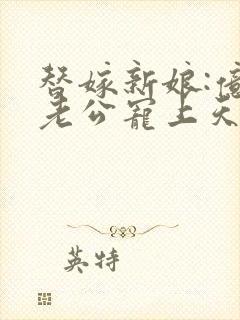 替嫁新娘:億
老公寵上天
英特